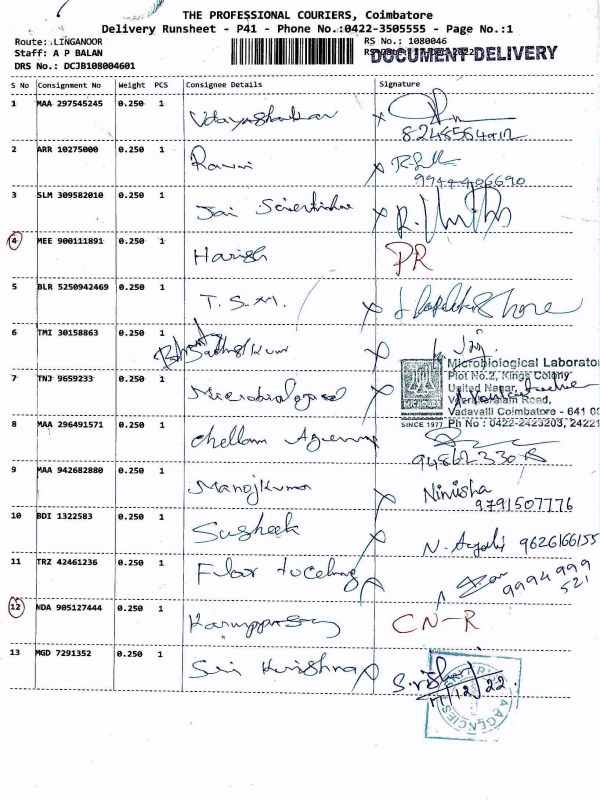 THE PROFESSIONAL COURIERS, Coimbatore
Delivery Runsheet - P41 - Phone No.:0422-3505555 - Page No.:1
Route: LINGANOOR
RS No.: 1080046
Staff: A P BALAN
DOCUMENT DELIVERY
DRS No.: DCJB108004601
S No Consignment No Weight PCS Consignee Details Signature
1 MAA 297545245 0.250 1 Udayashankar
2 ARR 10275000 0.250 1 Ravi
9944406690
3 SLM 309582010 0.250 1 Jai
4 MEE 900111891 0.250 1 Harish PR
5 BLR 5250942469 0.250 1 T.S.M.
6 TMI 30158863 0.250 1
Microbiological Laborator
Plot No.2, Kings Colony
7 TNJ 9659233 0.250 1 Microbiological
United Nagar,
Road,
Vadavalli Coimbatore - 641 0
SINCE 1977 Ph No : 0422-2423203, 24221
8 MAA 296491571 0.250 1 Chellam Agency
9 MAA 942682880 0.250 1 Manojkumar Nimisha
9791507776
10 BDI 1322583 0.250 1 Susheek N. 9626166155
11 TRZ 42461236 0.250 1
9994999
521
12 NDA 905127444 0.250 1 Karuppasamy CN-R
13 MGD 7291352 0.250 1 Sri Krishna
17/12/22
AGENCIES